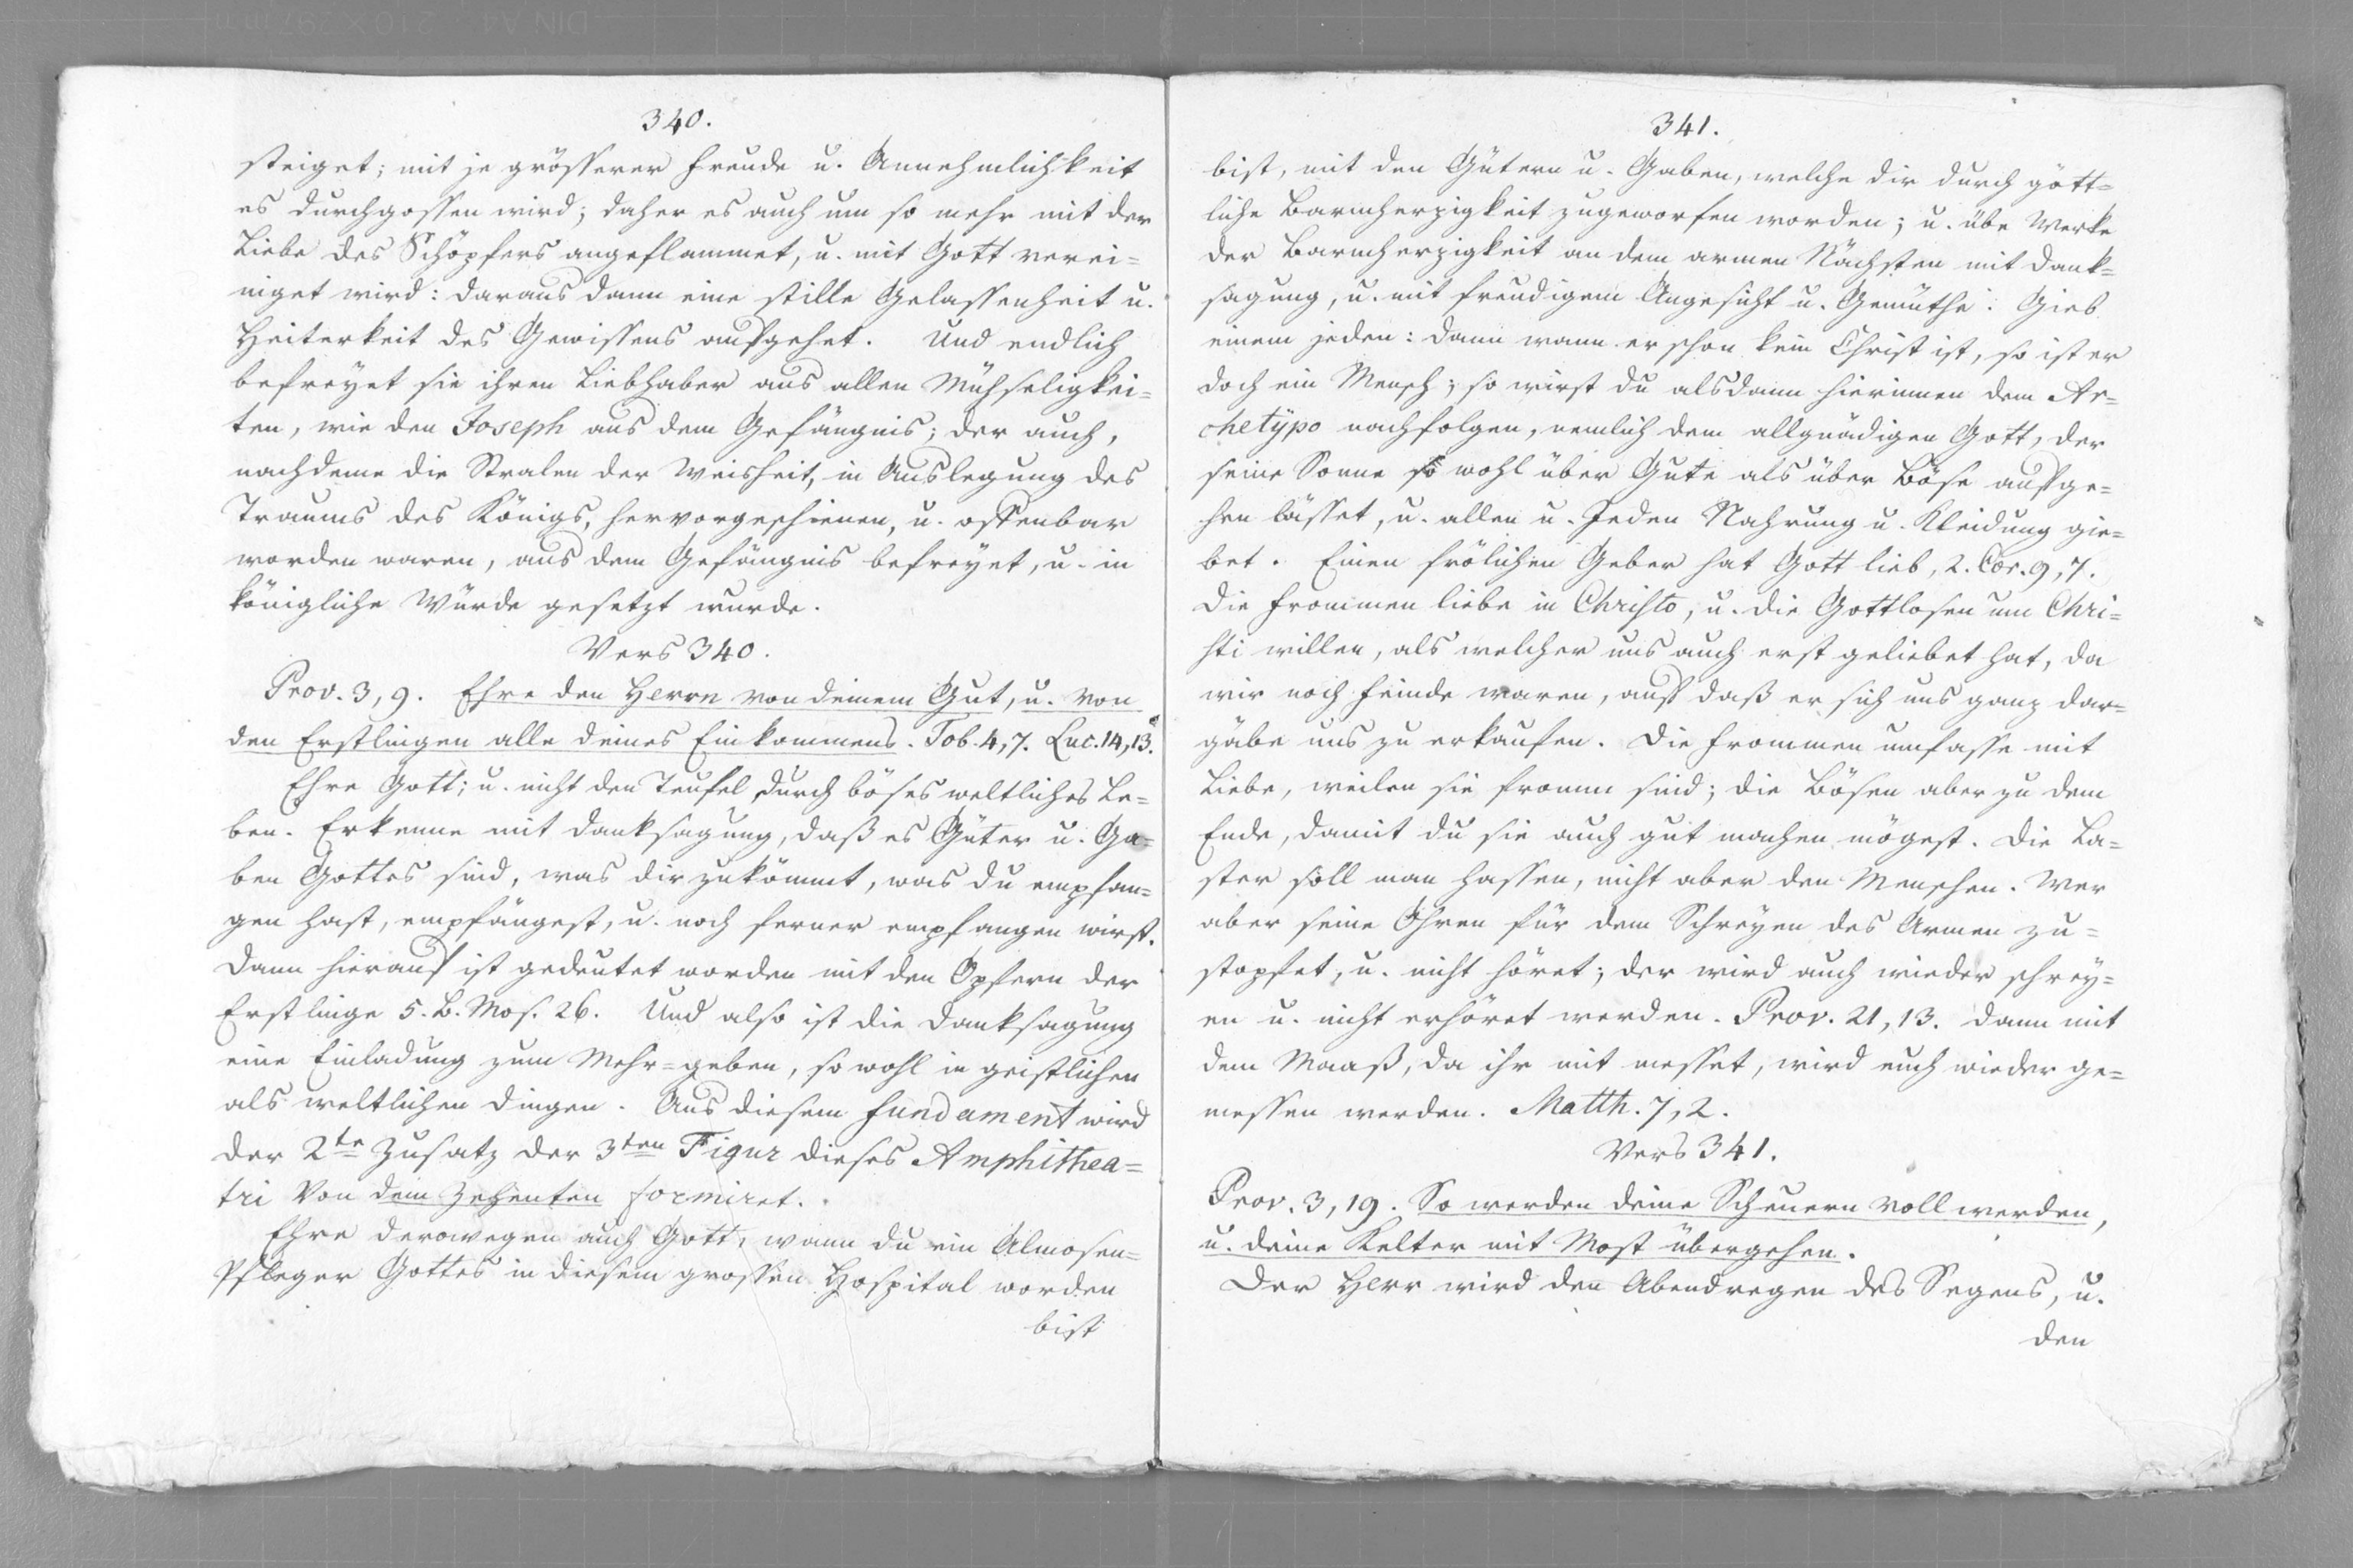 340.
steiget; mit je grösserer Freude u. Annehmlichkeit
es durchgossen wird; daher es auch um so mehr mit der
Liebe des Schöpfers angeflammet, u. mit Gott verei=
niget wird: daraus dann eine stille Gelassenheit u.
Heiterkeit des Gewissens aufgehet. Und endlich
befreyet sie ihren Liebhaber aus allen Mühseligkei=
ten, wie den Joseph aus dem Gefängnis; der auch,
nachdeme die Stralen der Weisheit, in Auslegung des
Traums des Königs, hervorgeschienen, u. offenbar
worden waren, aus dem Gefängnis befreyet, u. in
königliche Würde gesetzt wurde.
Vers 340.
Prov. 3, 9. Ehre den Herrn von deinem Gut, u. von
den Erstlingen alle deines Einkommens. Tob. 4, 7. Luc. 14, 13.
Ehre Gott; u. nicht den Teufel durch böses weltliches Le=
ben. Erkenne mit Danksagung, daß es Güter u. Ga=
ben Gottes sind, was dir zukömmt, was du empfan=
gen hast, empfängest, u. noch ferner empfangen wirst.
Dann hierauf ist gedeutet worden mit den Opfern der
Erstlinge 5. B. Mos. 26. Und also ist die Danksagung
eine Einladung zum Mehr=geben, so wohl in geistlichen
als weltlichen Dingen. Aus diesem fundament wird
der 2te Zusatz der 3ten Figur dieses Amphithea=
tri von dem Zehenten formiret.
Ehre derowegen auch Gott, wann du ein Almosen=
Pfleger Gottes in diesem grossen Hospital worden
bist
341.
bist, mit den Gütern u. Gaben, welche dir durch gött=
liche Barmherzigkeit zugeworfen worden; u. übe Werke
der Barmherzigkeit an dem armen Nächsten mit Dank=
sagung, u. mit freudigem Angesicht u. Gemüthe: Gieb
einem jeden: dann wann er schon kein Christ ist, so ist er
doch ein Mensch; so wirst du alsdann hierinnen dem Ar=
chetÿpo nachfolgen, nemlich dem allgnädigen Gott, der
seine Sonne so wohl über Gute als über Böse aufge=
hen lässet, u. allen u. Jeden Nahrung u. Kleidung gie=
bet. Einen frölichen Geber hat Gott lieb, 2. Cor. 9, 7.
Die Frommen liebe in Christo, u. die Gottlosen um Chri=
sti willen, als welcher uns auch erst geliebet hat, da
wir noch Feinde waren, auf daß er sich uns ganz dar=
gäbe uns zu erkaufen. Die Frommen umfasse mit
Liebe, weilen sie fromm sind; die Bösen aber zu dem
Ende, damit du sie auch gut machen mögest. Die La=
ster soll man hassen, nicht aber den Menschen. Wer
aber seine Ohren für dem Schreyen des Armen zu=
stopfet, u. nicht höret; der wird auch wieder schrey=
en u. nicht erhöret werden. Prov. 21, 13. Dann mit
dem Maaß, da ihr mit messet, wird euch wieder ge=
messen werden. Matth. 7, 2.
Vers 341.
Prov. 3, 19. So werden deine Scheuern voll werden,
u. deine Kelter mit Most übergehen.
Der Herr wird den Abendregen des Segens, u.
den